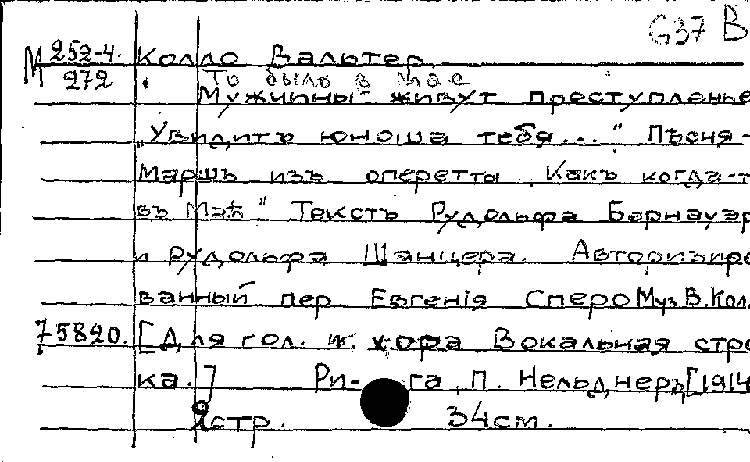 G37 B
М 252-4. Колло Вальтер.
272 То было в мае
Мужчины живут преступленье
„Увидитъ юноша тебя..." Пѣсня-
маршъ изъ оперетты „Какъ когда-т
въ Маѣ" Текстъ Рудольфа Бернауэр
и Рудольфа Шанцера. Авторизиро
ванный пер Евгенія Сперо Муз В. Кол.
75820. [Для гол. и хора Вокальная стро
ка.] Ри-га, П. Нельднеръ [1914
2стр. 34см.